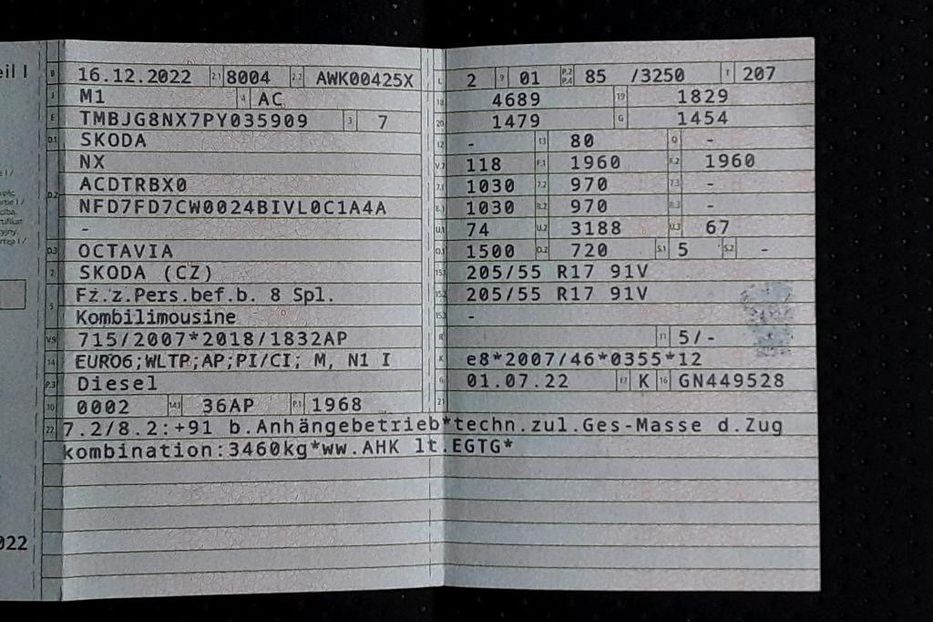 eil I
B 16.12.2022 2.1 8004 2.2 AWK00425X L 2 9 01 P.2 P.4 85 /3250 T 207
J M1 4 AC 18 4689 19 1829
E TMBJG8NX7PY035909 3 7 20 1479 G 1454
D.1 SKODA 12 - 13 80 Q -
NX V.7 118 F.1 1960 F.2 1960
D.2 ACDTRBX0 7.1 1030 7.2 970 7.3 -
NFD7FD7CW0024BIVL0C1A4A 8.1 1030 8.2 970 8.3 -
- U.1 74 U.2 3188 U.3 67
D.3 OCTAVIA O.1 1500 O.2 720 S.1 5 S.2 -
2 SKODA (CZ) 15.1 205/55 R17 91V
5 Fz.z.Pers.bef.b. 8 Spl. 15.2 205/55 R17 91V
Kombilimousine 15.3 -
V.9 715/2007*2018/1832AP R 11 5/-
14 EURO6;WLTP;AP;PI/CI; M, N1 I K e8*2007/46*0355*12
P.3 Diesel 6 01.07.22 17 K 16 GN449528
10 0002 14.1 36AP P.1 1968 21
22 7.2/8.2:+91 b.Anhängebetrieb*techn.zul.Ges-Masse d.Zug
kombination:3460kg*ww.AHK lt.EGTG*
022